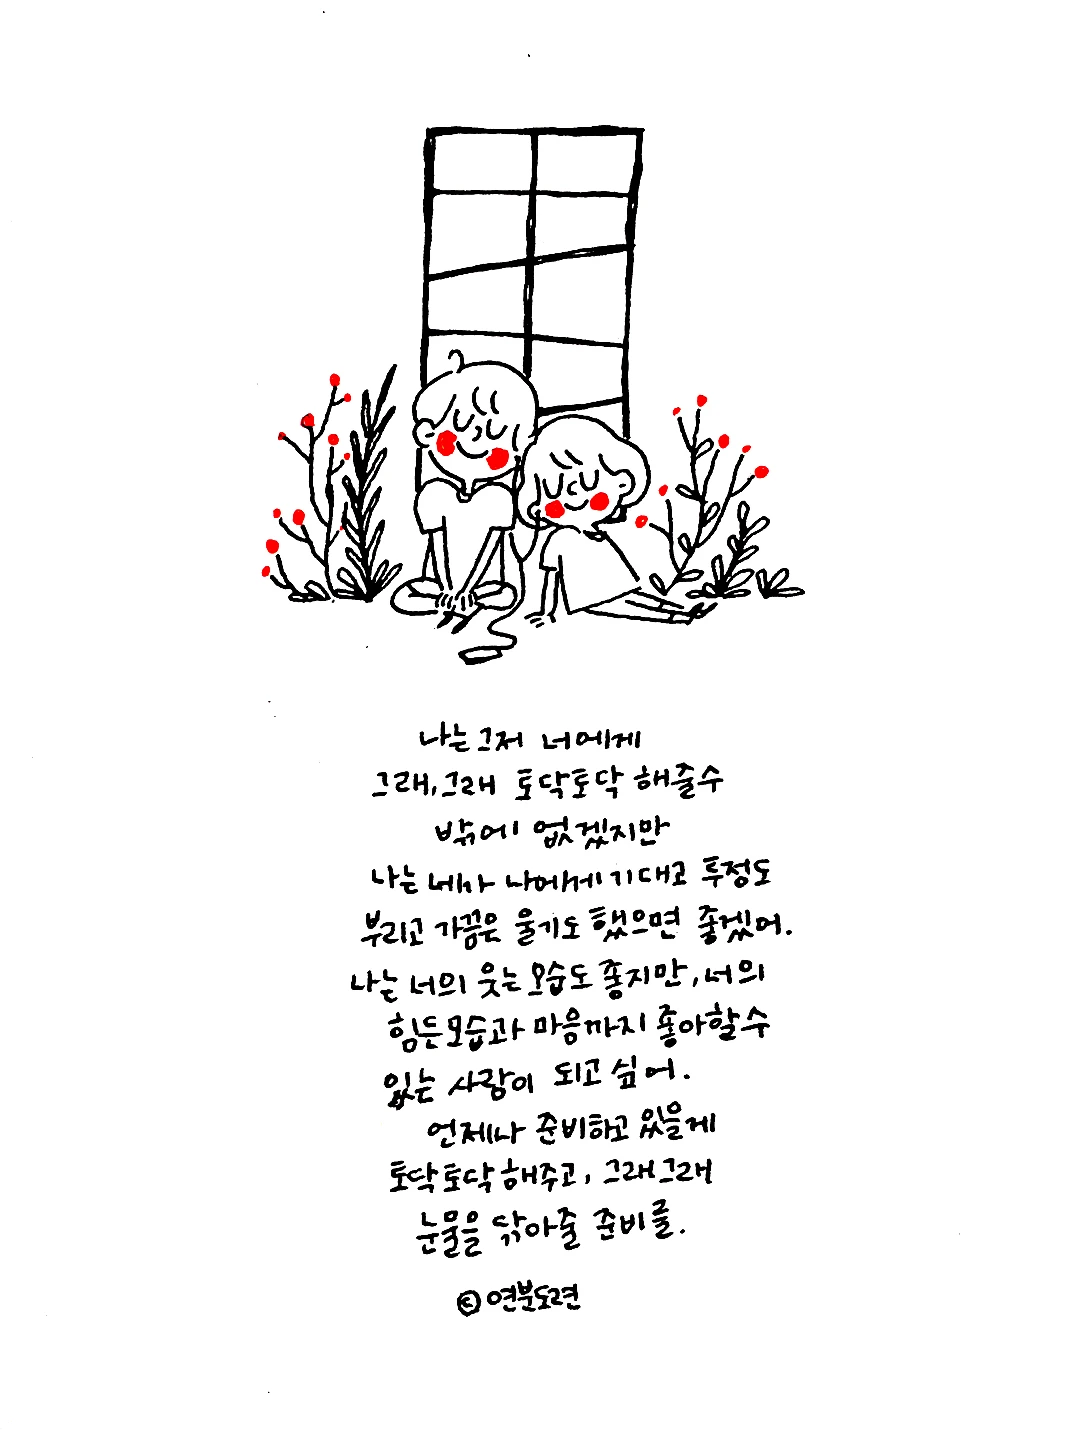 나는 그저 너에게
그래, 그래 토닥토닥 해줄수
밖에 없겠지만
나는 네가 나에게 기대고 투정도
부리고 가끔은 울기도 했으면 좋겠어.
나는 너의 웃는 모습도 좋지만, 너의
힘든모습과 마음까지 좋아할수
있는 사람이 되고 싶어.
언제나 준비하고 있을게
토닥토닥 해주고, 그래그래
눈물을 닦아줄 준비를.
© 연분도련